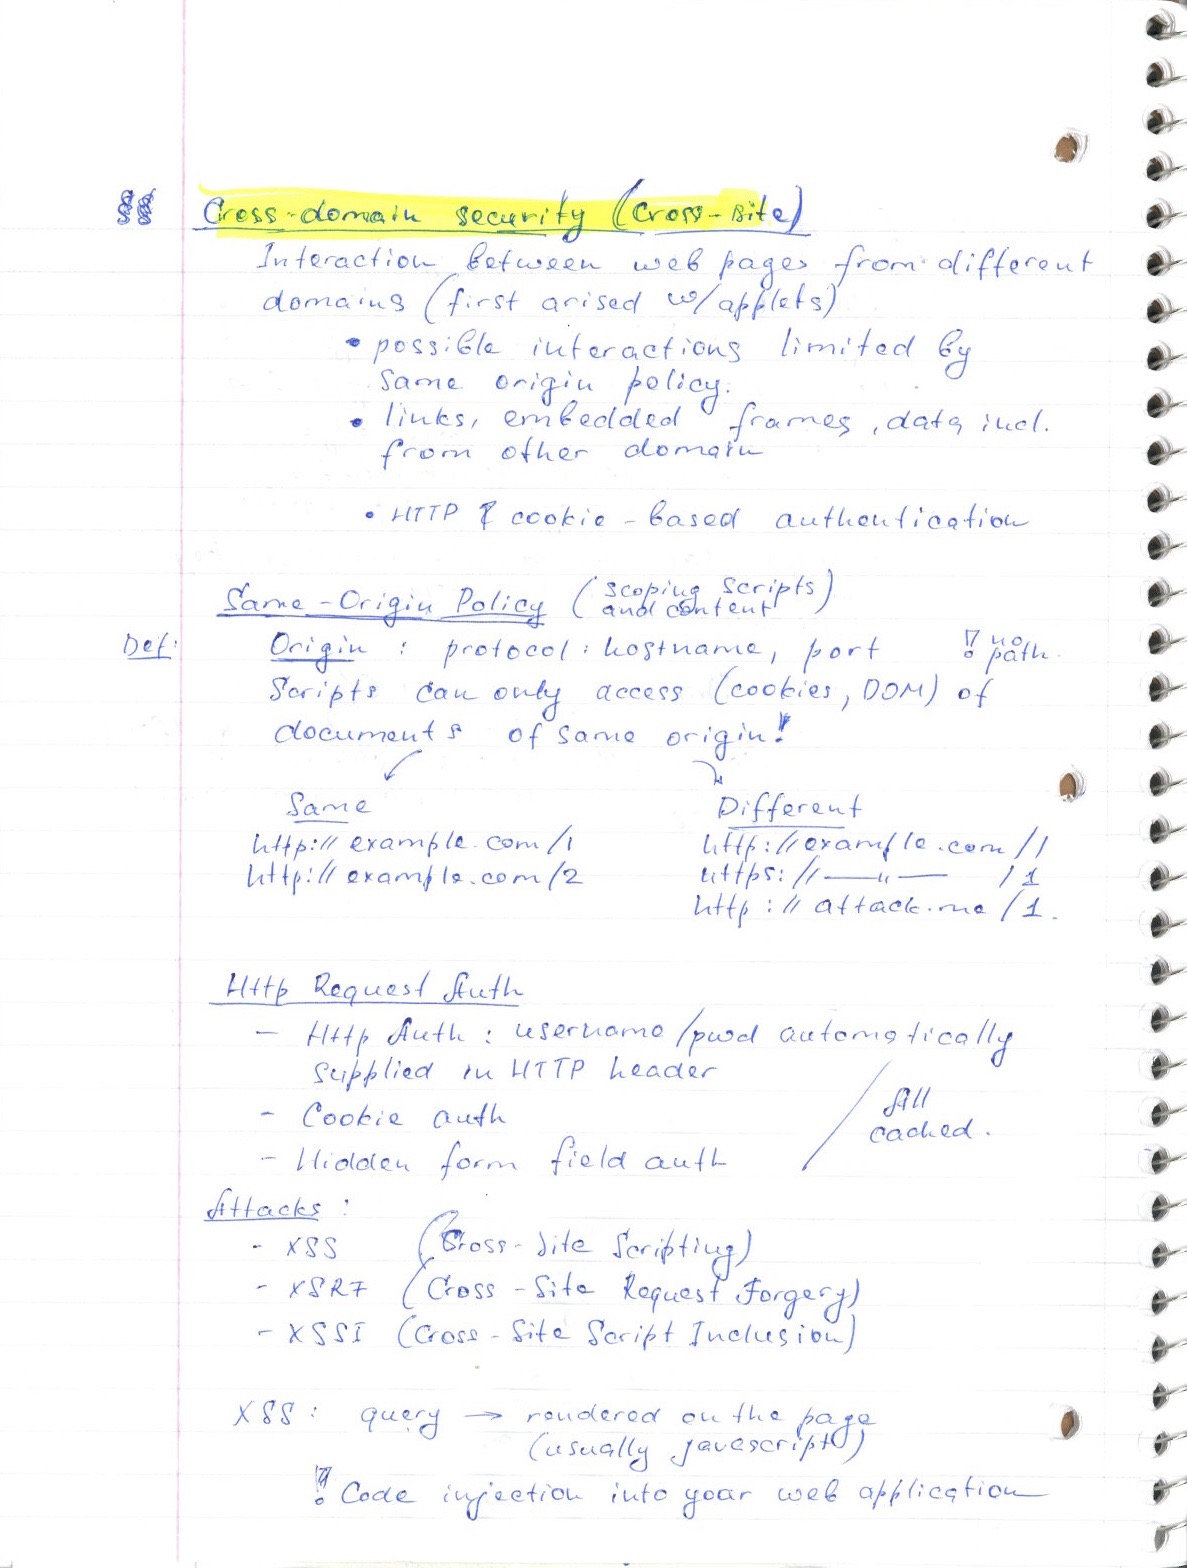 §§ Cross-domain security (Cross-site)
Interaction between web pages from different
domains (first arised w/applets)
• possible interactions limited by
same origin policy.
• links, embedded frames, data incl.
from other domain
• HTTP & cookie-based authentication
Same-Origin Policy (scoping scripts
and content)
Def: Origin : protocol : hostname, port ! no
path.
Scripts can only access (cookies, DOM) of
documents of same origin!
Same Different
http://example.com/1 http://example.com/1
http://example.com/2 https://—"—/1
http://attack.me/1.
Http Request Auth
- Http Auth : username/pwd automatically
supplied in HTTP header
- Cookie auth All
cached.
- Hidden form field auth
Attacks :
- XSS (Cross-Site Scripting)
- XSRF (Cross-Site Request Forgery)
- XSSI (Cross-Site Script Inclusion)
XSS : query → rendered on the page
(usually javascript)
! Code injection into your web application